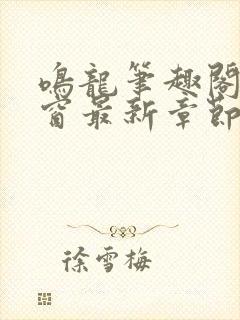 鳴龍筆趣閣
窗最新章節
徐雪梅